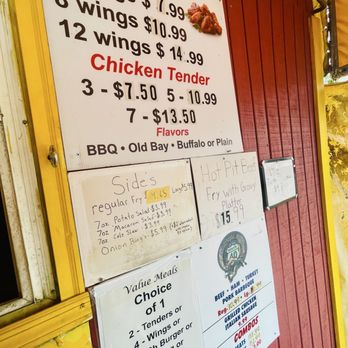 wings $ 7.99
8 wings $10.99
12 wings $ 14.99
Chicken Tender
3 - $7.50 5 - 10.99
7 - $13.50
Flavors
BBQ • Old Bay • Buffalo or Plain
Side's
regular Fry
7oz Potato Salad $3.99
7oz Macaroni Salad $3.99
7oz Cole Slaw $3.99
Onion Rings $5.99
Hot Pit Beef
Fry with Gravy
Platter
$15.
Value Meals
Choice
of 1
2 - Tenders or
4 - Wings or
Burger
BEEF • HAM • TURKEY
PORK BARBECUE
GRILLED CHICKEN
ITALIAN SAUSAGE
COMBOS